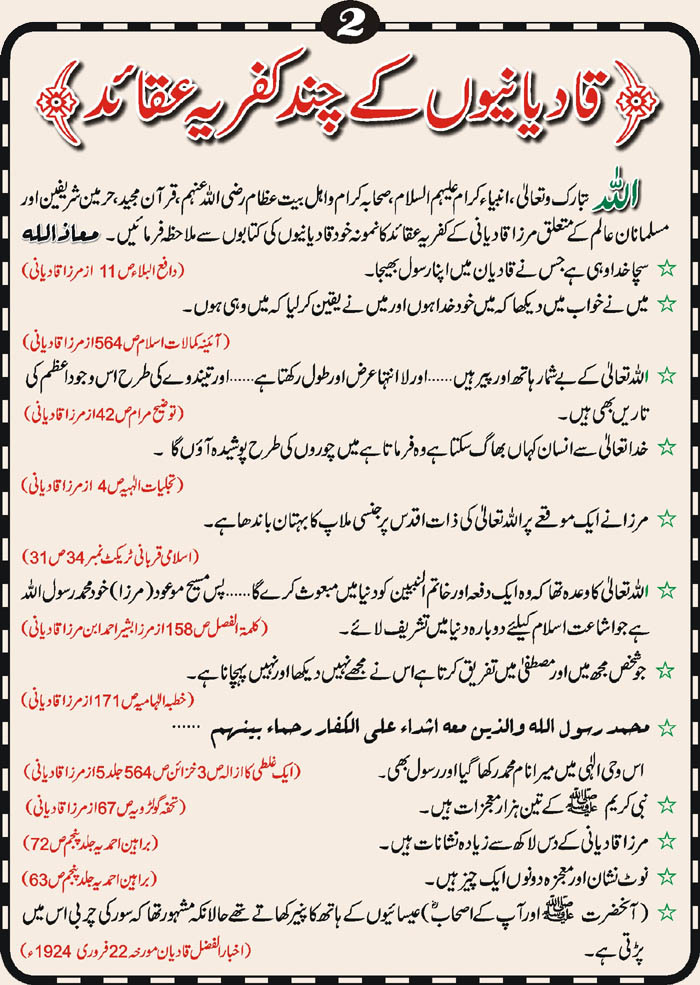 2
قادیانیوں کے چند کفریہ عقائد
اللہ تبارک وتعالیٰ، انبیاء کرام علیہم السلام، صحابہ کرام واہل بیت عظام رضی اللہ عنہم، قرآن مجید، حرمین شریفین اور
مسلمانان عالم کے متعلق مرزا قادیانی کے کفریہ عقائد کا نمونہ خود قادیانیوں کی کتابوں سے ملاحظہ فرمائیں۔ معاذ اللہ
☆ سچا خدا وہی ہے جس نے قادیان میں اپنا رسول بھیجا۔ (دافع البلاء ص 11 از مرزا قادیانی)
☆ میں نے خواب میں دیکھا کہ میں خود خدا ہوں اور میں نے یقین کر لیا کہ میں وہی ہوں۔
(آئینہ کمالات اسلام ص 564 از مرزا قادیانی)
☆ اللہ تعالیٰ کے بے شمار ہاتھ اور پیر ہیں ...... اور لا انتہا عرض اور طول رکھتا ہے ...... اور تیندوے کی طرح اس وجود اعظم کی
تاریں بھی ہیں۔ (توضیح مرام ص 42 از مرزا قادیانی)
☆ خدا تعالیٰ سے انسان کہاں بھاگ سکتا ہے وہ فرماتا ہے میں چوروں کی طرح پوشیدہ آؤں گا ۔
(تجلیات الٰہیہ ص 4 از مرزا قادیانی)
☆ مرزا نے ایک موقعے پر اللہ تعالیٰ کی ذات اقدس پر جنسی ملاپ کا بہتان باندھا ہے۔
(اسلامی قربانی ٹریکٹ نمبر 34 ص 31)
☆ اللہ تعالیٰ کا وعدہ تھا کہ وہ ایک دفعہ اور خاتم النبیین کو دنیا میں مبعوث کرے گا ...... پس مسیح موعود (مرزا) خود محمد رسول اللہ
ہے جو اشاعت اسلام کیلئے دوبارہ دنیا میں تشریف لائے۔ (کلمۃ الفصل ص 158 از مرزا بشیر احمد ابن مرزا قادیانی)
☆ جو شخص مجھ میں اور مصطفیٰ میں تفریق کرتا ہے اس نے مجھے نہیں دیکھا اور نہیں پہچانا ہے۔
(خطبہ الہامیہ ص 171 از مرزا قادیانی)
☆ محمد رسول الله والذين معه اشداء على الكفار رحماء بينهم ......
اس وحی الٰہی میں میرا نام محمد رکھا گیا اور رسول بھی۔ (ایک غلطی کا ازالہ ص 3 خزائن ص 564 جلد 5 از مرزا قادیانی)
☆ نبی کریم ﷺ کے تین ہزار معجزات ہیں۔ (تحفہ گولڑویہ ص 67 از مرزا قادیانی)
☆ مرزا قادیانی کے دس لاکھ سے زیادہ نشانات ہیں۔ (براہین احمدیہ جلد پنجم ص 72)
☆ نوٹ نشان اور معجزہ دونوں ایک چیز ہیں۔ (براہین احمدیہ جلد پنجم ص 63)
☆ (آنحضرت ﷺ اور آپ کے اصحابؓ) عیسائیوں کے ہاتھ کا پنیر کھاتے تھے حالانکہ مشہور تھا کہ سور کی چربی اس میں
پڑتی ہے۔ (اخبار الفضل قادیان مورخہ 22 فروری 1924ء)